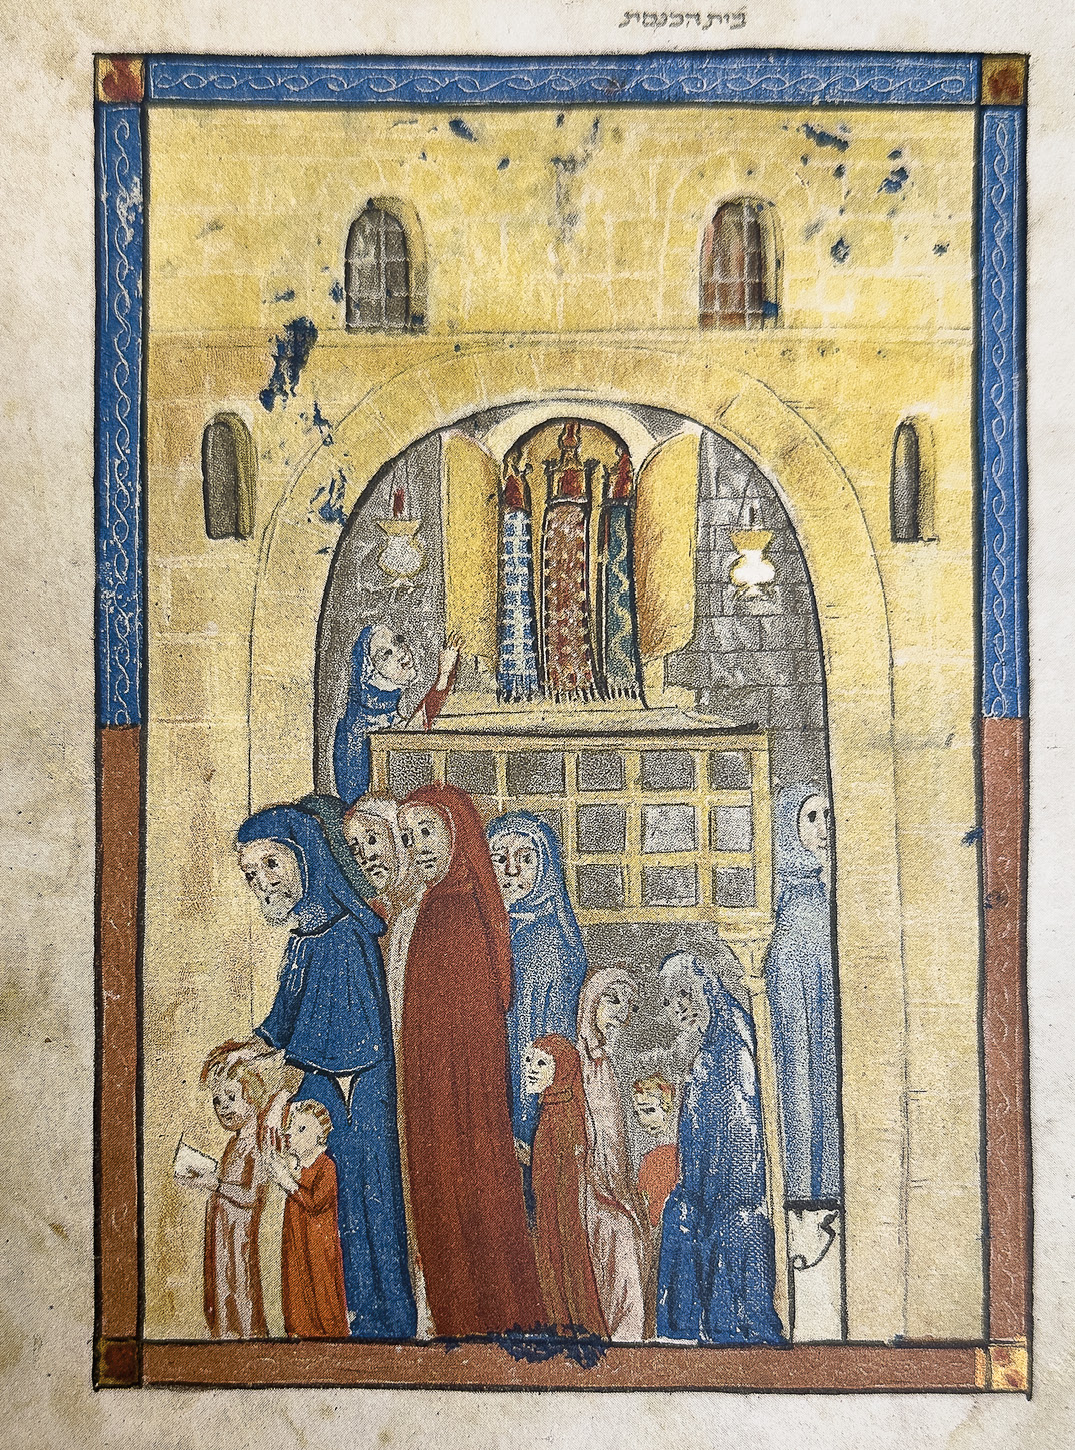 בית הכנסת